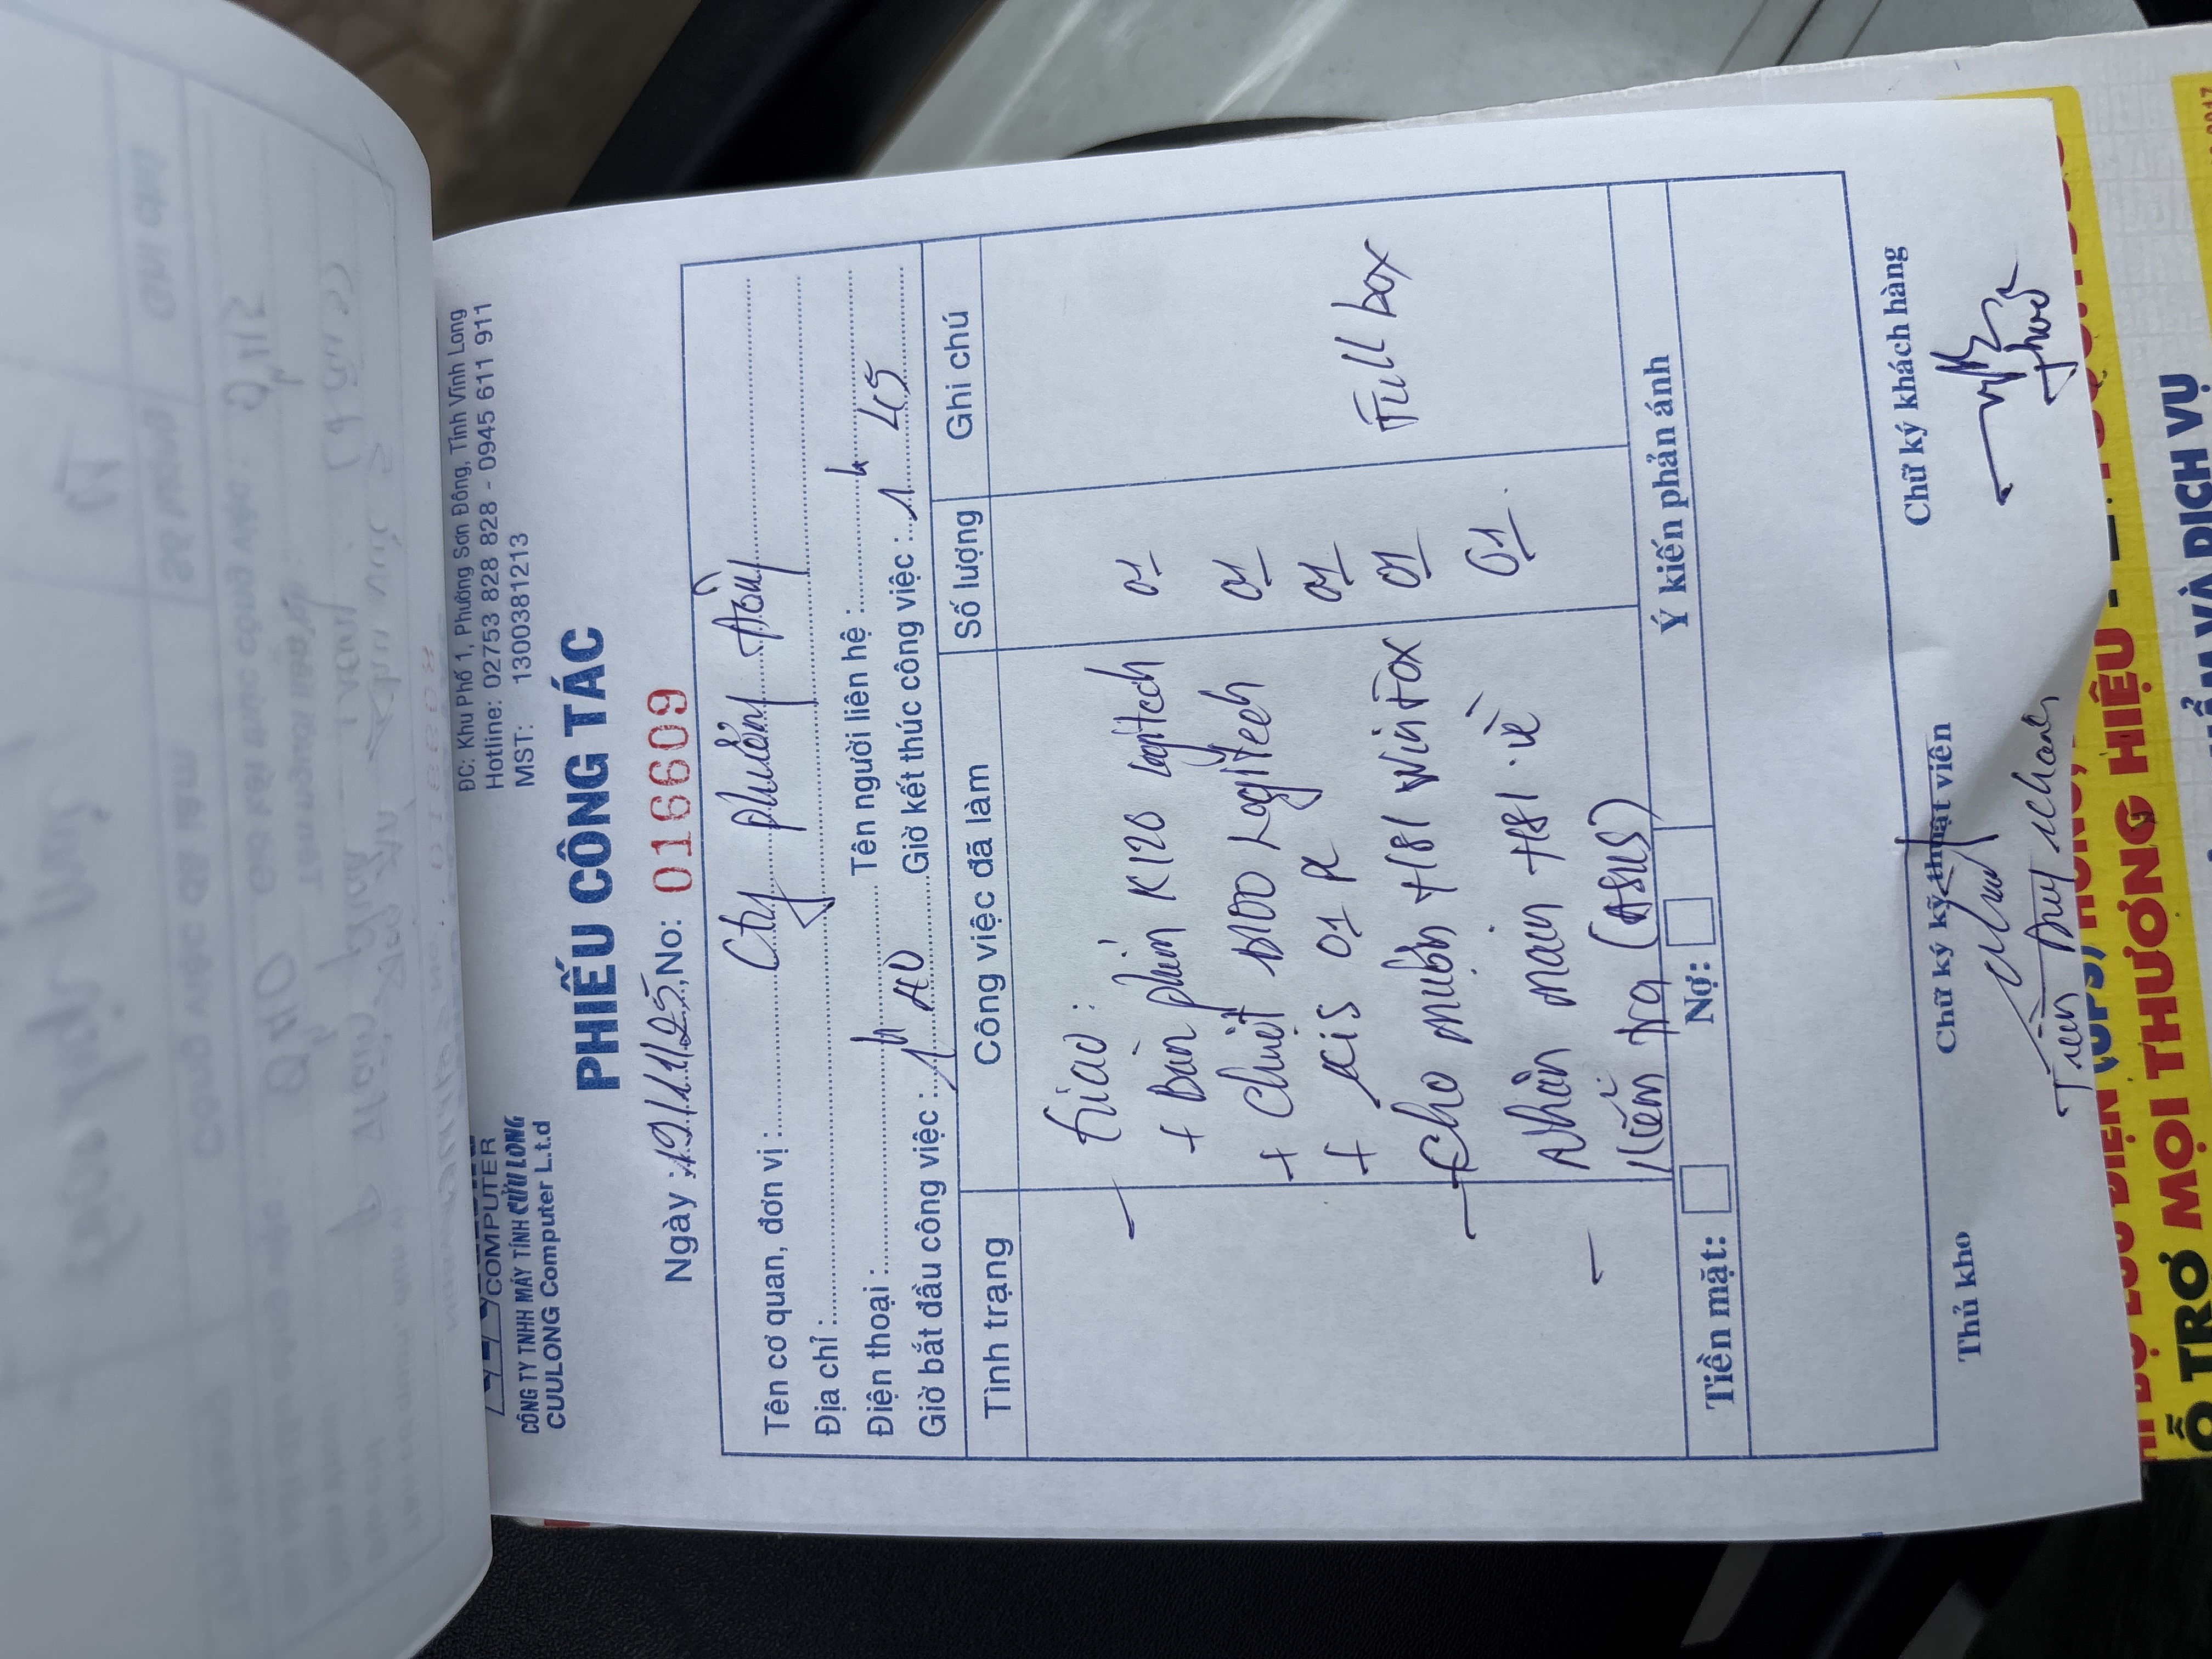 COMPUTER
CÔNG TY TNHH MÁY TÍNH CỬU LONG
CUULONG Computer L.t.d
ĐC: Khu Phố 1, Phường Sơn Đông, Tỉnh Vĩnh Long
Hotline: 02753 828 828 - 0945 611 911
MST: 1300381213
PHIẾU CÔNG TÁC
Ngày : 19/11/25, No: 016609
Tên cơ quan, đơn vị : Cty phương Đông
Địa chỉ :
Điện thoại : Tên người liên hệ :
Giờ bắt đầu công việc : 1h 40 Giờ kết thúc công việc : 1h 45
Tình trạng Công việc đã làm Số lượng Ghi chú
- Giao :
+ Bàn phím K120 Logitech 01
+ Chuột M100 Logitech 01
+ KIS 01 PC 01
- Cho mượn H81 Winfox 01 Full box
- Nhận main H81 về 01
Kiểm tra (ASUS)
Tiền mặt: Nợ: Ý kiến phản ánh
Thủ kho Chữ ký kỹ thuật viên Chữ ký khách hàng
Duy Khanh
MỌI THƯƠNG HIỆU -
Ỗ TRỢ
VÀ DỊCH VỤ